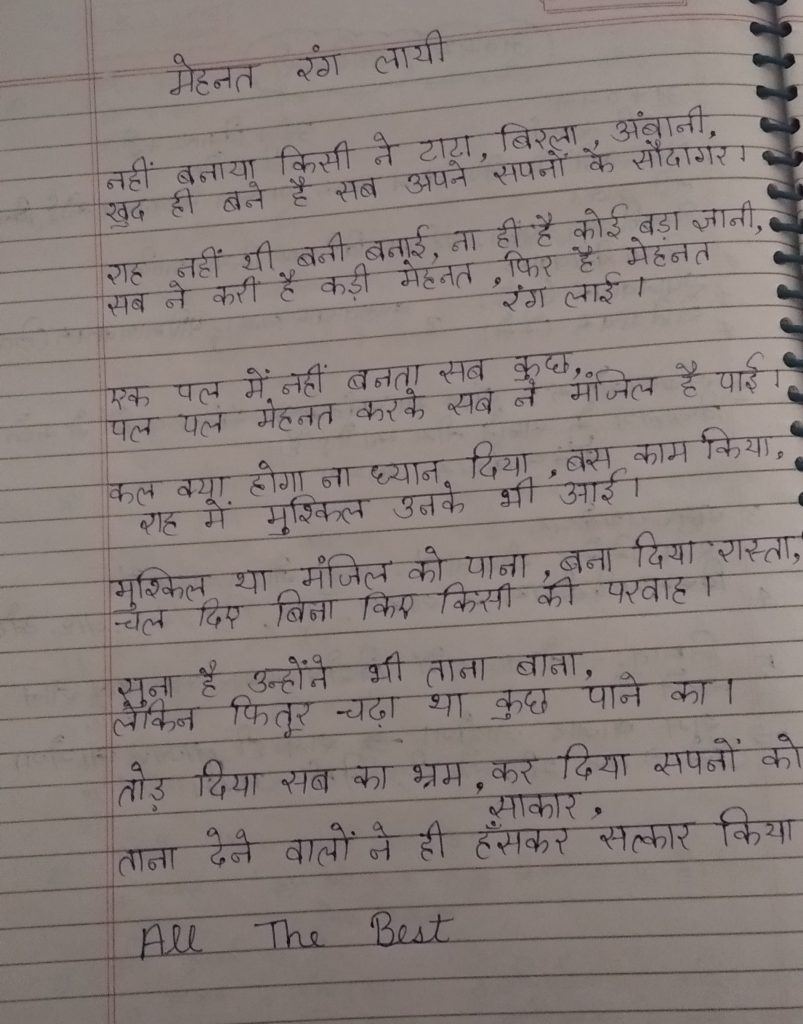 मेहनत रंग लायी
नहीं बनाया किसी ने टाटा, बिरला, अंबानी,
खुद ही बने है सब अपने सपनों के सौदागर।
राह नहीं थी बनी बनाई, ना ही है कोई बड़ा ज्ञानी,
सब ने करी है कड़ी मेहनत, फिर है मेहनत
रंग लाई।
एक पल में नहीं बनता सब कुछ,
पल पल मेहनत करके सब ने मंजिल है पाई।
कल क्या होगा ना ध्यान दिया, बस काम किया,
राह में मुश्किल उनके भी आई।
मुश्किल था मंजिल को पाना, बना दिया रास्ता,
चल दिए बिना किए किसी की परवाह।
सुना है उन्होंने भी ताना बाना,
लेकिन फितूर चढ़ा था कुछ पाने का।
तोड़ दिया सब का भ्रम, कर दिया सपनों को
साकार,
ताना देने वालों ने ही हँसकर सत्कार किया
All The Best